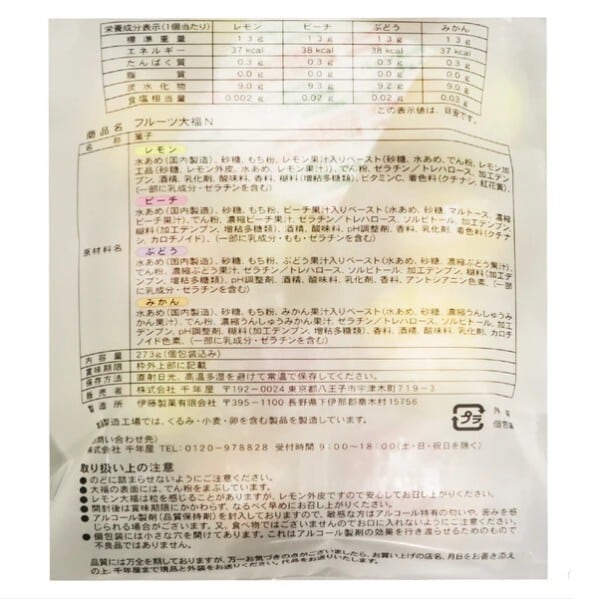 栄養成分表示(1個当たり) レモン ピーチ ぶどう みかん
標準重量 13g 13g 13g 13g
エネルギー 37kcal 38kcal 38kcal 37kcal
たんぱく質 0.3g 0.3g 0.3g 0.3g
脂質 0.0g 0.0g 0.0g 0.0g
炭水化物 9.0g 9.3g 9.2g 9.0g
食塩相当量 0.002g 0.02g 0.02g 0.03g
この表示値は、目安です。
商品名 フルーツ大福N
名称 菓子
原材料名
レモン
水あめ(国内製造)、砂糖、もち粉、レモン果汁入りペースト(砂糖、水あめ、でん粉、レモン加
工品(砂糖、レモン外皮、水あめ、レモン果汁))、でん粉、ゼラチン/トレハロース、加工デン
プン、酒精、乳化剤、酸味料、香料、糊料(増粘多糖類)、ビタミンC、着色料(クチナシ、紅花黄)、
(一部に乳成分・ゼラチンを含む)
ピーチ
水あめ(国内製造)、砂糖、もち粉、ピーチ果汁入りペースト(水あめ、砂糖、マルトース、濃縮
ピーチ果汁)、でん粉、濃縮ピーチ果汁、ゼラチン/トレハロース、ソルビトール、加工デンプン、
糊料(加工デンプン、増粘多糖類)、酒精、酸味料、pH調整剤、香料、乳化剤、着色料(クチナ
シ、カロチノイド)、(一部に乳成分・もも・ゼラチンを含む)
ぶどう
水あめ(国内製造)、砂糖、もち粉、ぶどう果汁入りペースト(水あめ、砂糖、濃縮ぶどう果汁)、
でん粉、濃縮ぶどう果汁、ゼラチン/トレハロース、ソルビトール、加工デンプン、糊料(加工デン
プン、増粘多糖類)、pH調整剤、酒精、酸味料、乳化剤、香料、アントシアニン色素、(一部
に乳成分・ゼラチンを含む)
みかん
水あめ(国内製造)、砂糖、もち粉、みかん果汁入りペースト(水あめ、砂糖、濃縮うんしゅうみ
かん果汁)、でん粉、濃縮うんしゅうみかん果汁、ゼラチン/トレハロース、ソルビトール、加工
デンプン、pH調整剤、糊料(加工デンプン、増粘多糖類)、香料、酒精、酸味料、乳化剤、カロチ
ノイド色素、(一部に乳成分・ゼラチンを含む)
内容量 273g(個包装込み)
賞味期限 枠外上部に記載
保存方法 直射日光、高温多湿を避けて常温で保存してください。
販売者 株式会社 千年屋 〒192-0024 東京都八王子市宇津木町719-3
製造所 伊藤製菓有限会社 〒395-1100 長野県下伊那郡喬木村15756
製造工場では、くるみ・小麦・卵を含む製品を製造しています。
問い合わせ先)
株式会社 千年屋 TEL:0120-978828 受付時間 9:00~18:00(土・日・祝日を除く)
プラ
外装
個包装
取り扱い上の注意
●のどに詰まらせないようにご注意ください。
●大福の表面には、でん粉をまぶしています。
●レモン大福は粒を感じることがありますが、レモン外皮ですので安心してお召し上がりください。
●開封後は賞味期限にかかわらず、なるべく早めにお召し上がりください。
●アルコール製剤(品質保持剤)を封入しておりますので、敏感な方はアルコール特有の匂いや、苦みを感
じられる場合がございます。又、食べ物ではございませんのでお口に入れないようにご注意ください。
●個包装には小さな穴を開けてあります。これはアルコール製剤の効果を行き渡らせるためのもので
不良品ではありません。
品質には万全を期しておりますが、万一お気づきの点がございましたら、お買い上げの店名、月日をお書き添え
の上、千年屋まで現品と外装をお送りください。代品をお送りいたします。